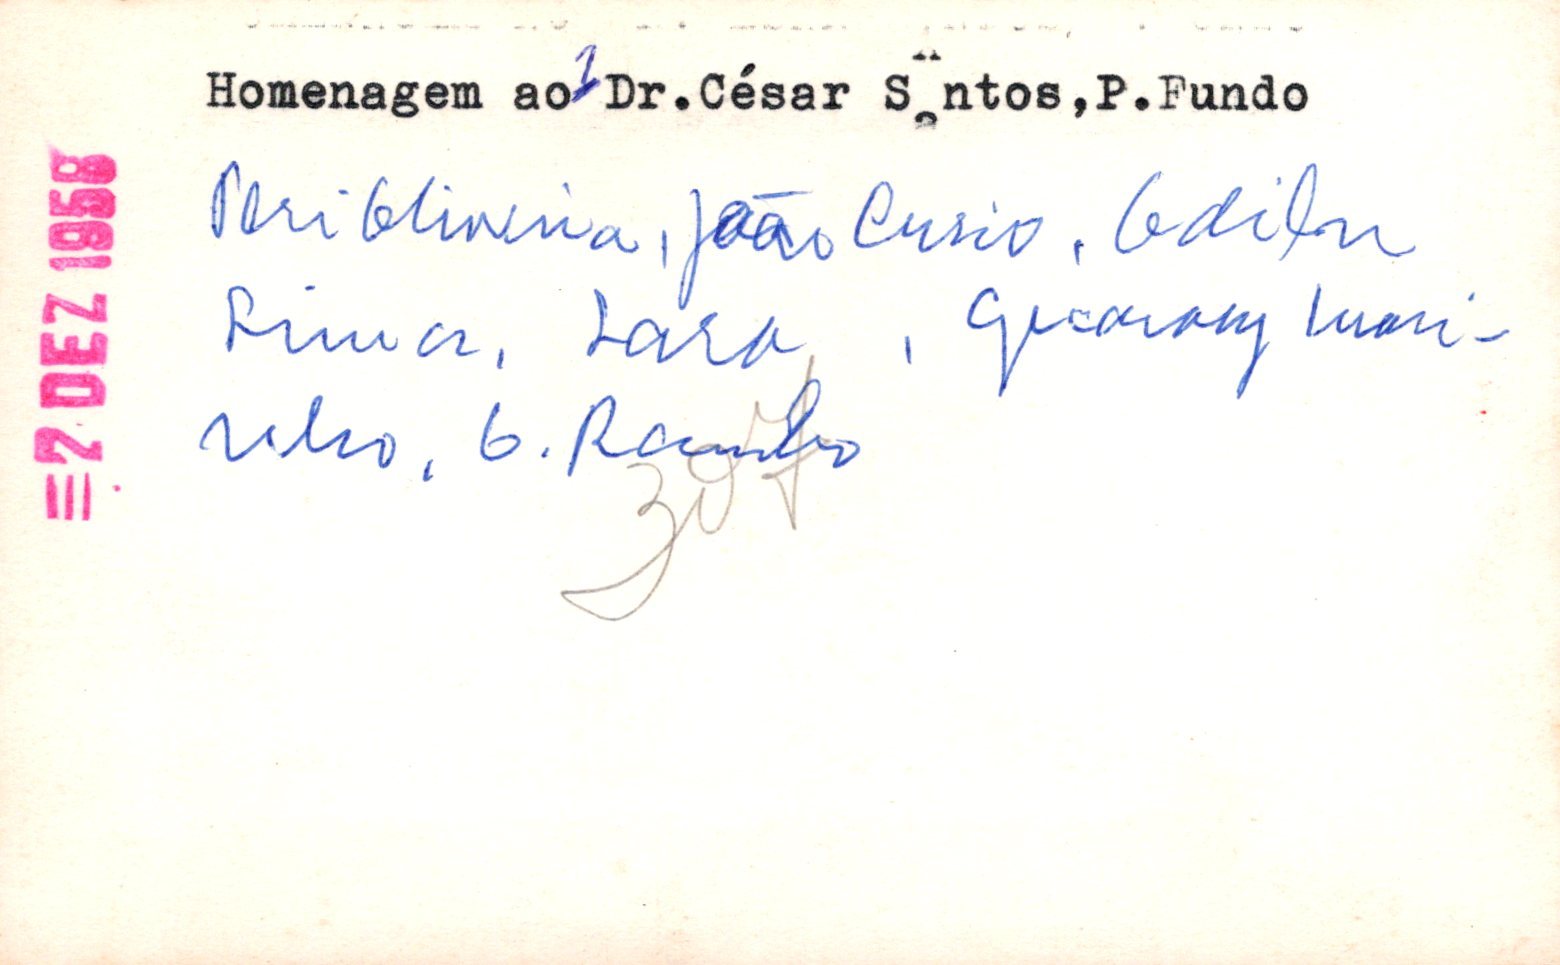 Homenagem ao Dr.César Santos,P.Fundo
Peri Oliveira, João Cursio, Odilon
Lima, Lara, Guarany Mari-
nho, O. Rambo
307
=2 DEZ 1958